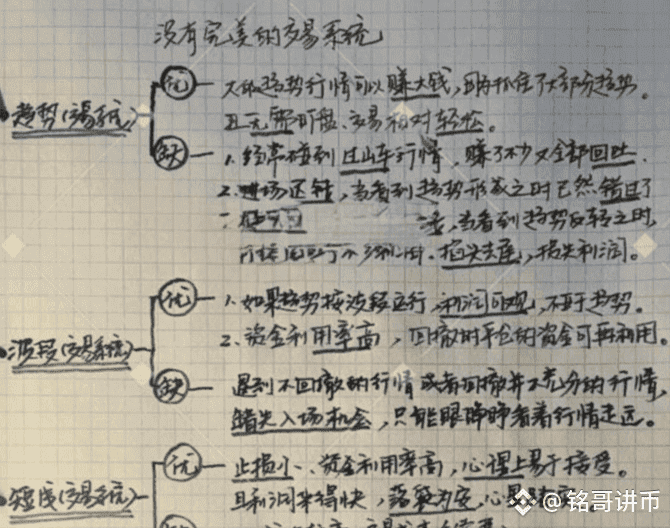 没有完美的交易系统
趋势(交易系统)
优
大级趋势行情可以赚大钱,因为抓住了大部分趋势。
且无需盯盘、交易相对轻松。
缺
1. 经常碰到过山车行情,赚了不少又全部回吐.
2. 进场迟钝,当看到趋势形成之时已然错过了
一 ,当看到趋势反转之时,
掐头去尾,损失利润。
波段(交易系统)
优
1. 如果趋势按波段运行,利润可观,不亚于趋势。
2. 资金利用率高,回撤时平仓的资金可再利用。
缺
遇到不回撤的行情或者回撤并不充分的行情,
错失入场机会,只能眼睁睁看着行情走远。
短线(交易系统)
优
止损小、资金利用率高,心理上易于接受。
且利润来得快,落袋为安,
缺
@铭哥讲币